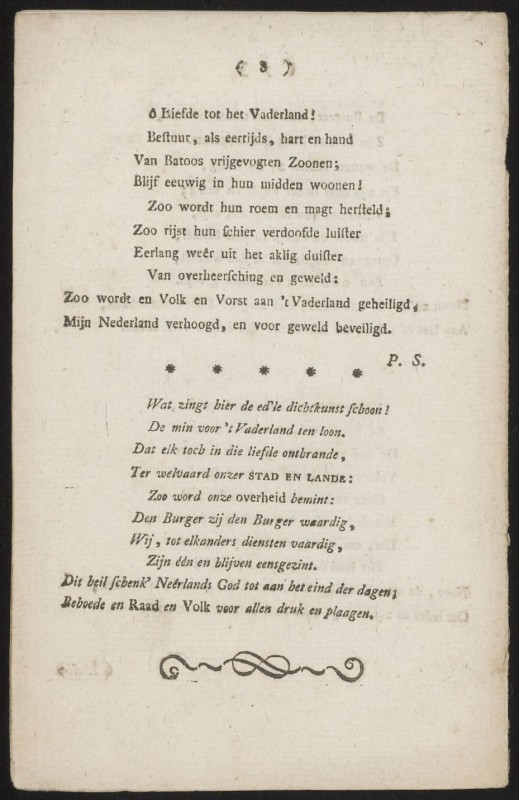 ( 8 )
ô Liefde tot het Vaderland!
Beſtuur, als eertijds, hart en hand
Van Batoos vrijgevogten Zoonen;
Blijf eeuwig in hun midden woonen!
Zoo wordt hun roem en magt herſteld;
Zoo rijst hun ſchier verdoofde luiſter
Eerlang weêr uit het aklig duiſter
Van overheerſching en geweld:
Zoo wordt en Volk en Vorst aan 't Vaderland geheiligd,
Mijn Nederland verhoogd, en voor geweld beveiligd.
P. S.
* * * * *
Wat zingt hier de ed'le dichtkunst ſchoon!
De min voor 't Vaderland ten loon.
Dat elk toch in die liefde ontbrande,
Ter welvaard onzer STAD EN LANDE:
Zoo word onze overheid bemint:
Den Burger zij den Burger waardig,
Wij, tot elkanders dienſten vaardig,
Zijn één en blijven eensgezint.
Dit heil ſchenk' Neêrlands God tot aan het eind der dagen;
Behoede en Raad en Volk voor allen druk en plaagen.